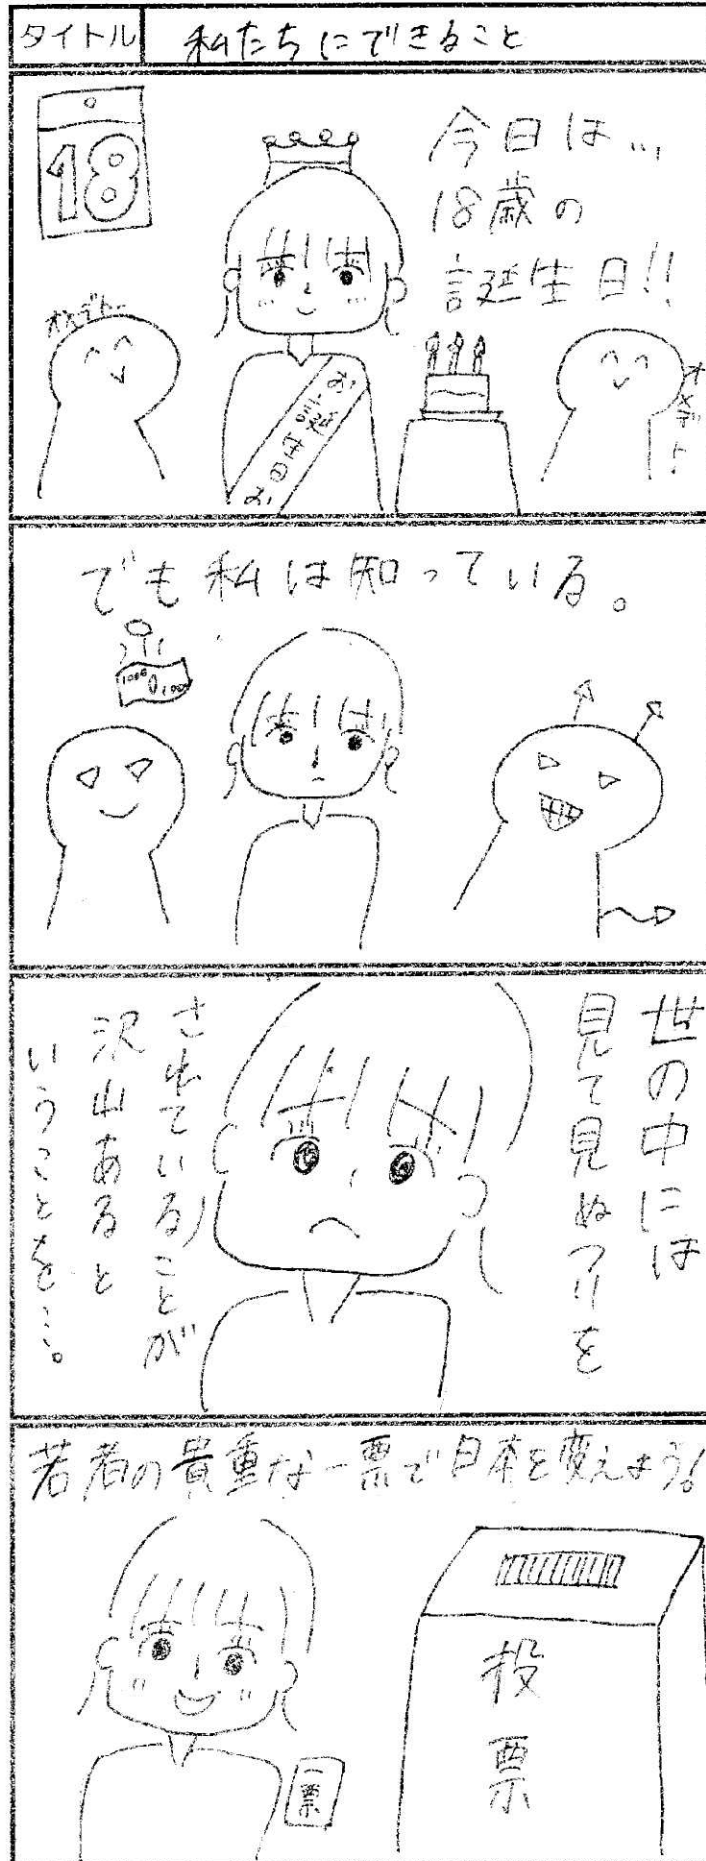 タイトル 私たちにできること
18
今日は...
18歳の
誕生日!!
オメデトー
オメデトー
でも私は知っている。
1000 0 1000
世の中には
見て見ぬフリを
されていることが
沢山あると
いうことを…。
若者の貴重な一票で日本を変えよう!
一票
投票